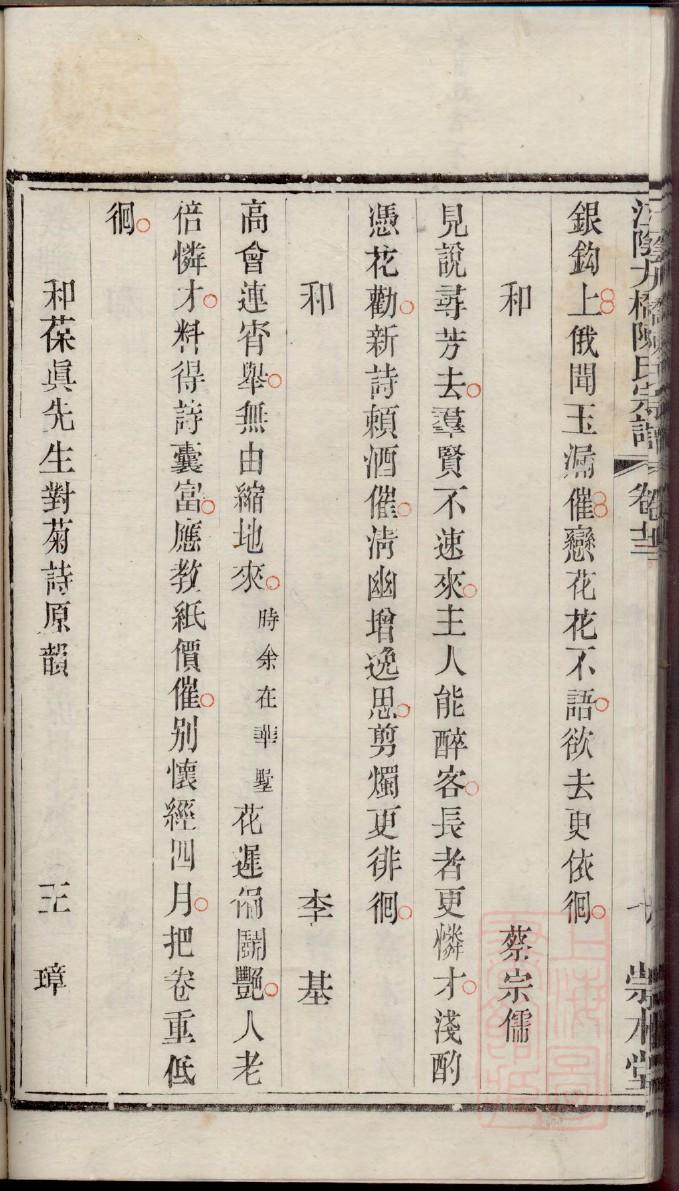 江陰九橋陳氏宗譜 卷十三 崇本堂
銀鈎上俄聞玉漏催戀花花不語欲去更依徊
和 蔡宗儒
見說尋芳去羣賢不速來主人能醉客長者更憐才淺酌
憑花勸新詩頼酒催淸幽增逸思剪燭更徘徊
和 李基
高會連宵舉無由縮地來時余在華墅花遲偏鬭艷人老
倍憐才料得詩囊富應教紙價催别懷經四月把卷重低
徊
和葆眞先生對菊詩原韻 王璋